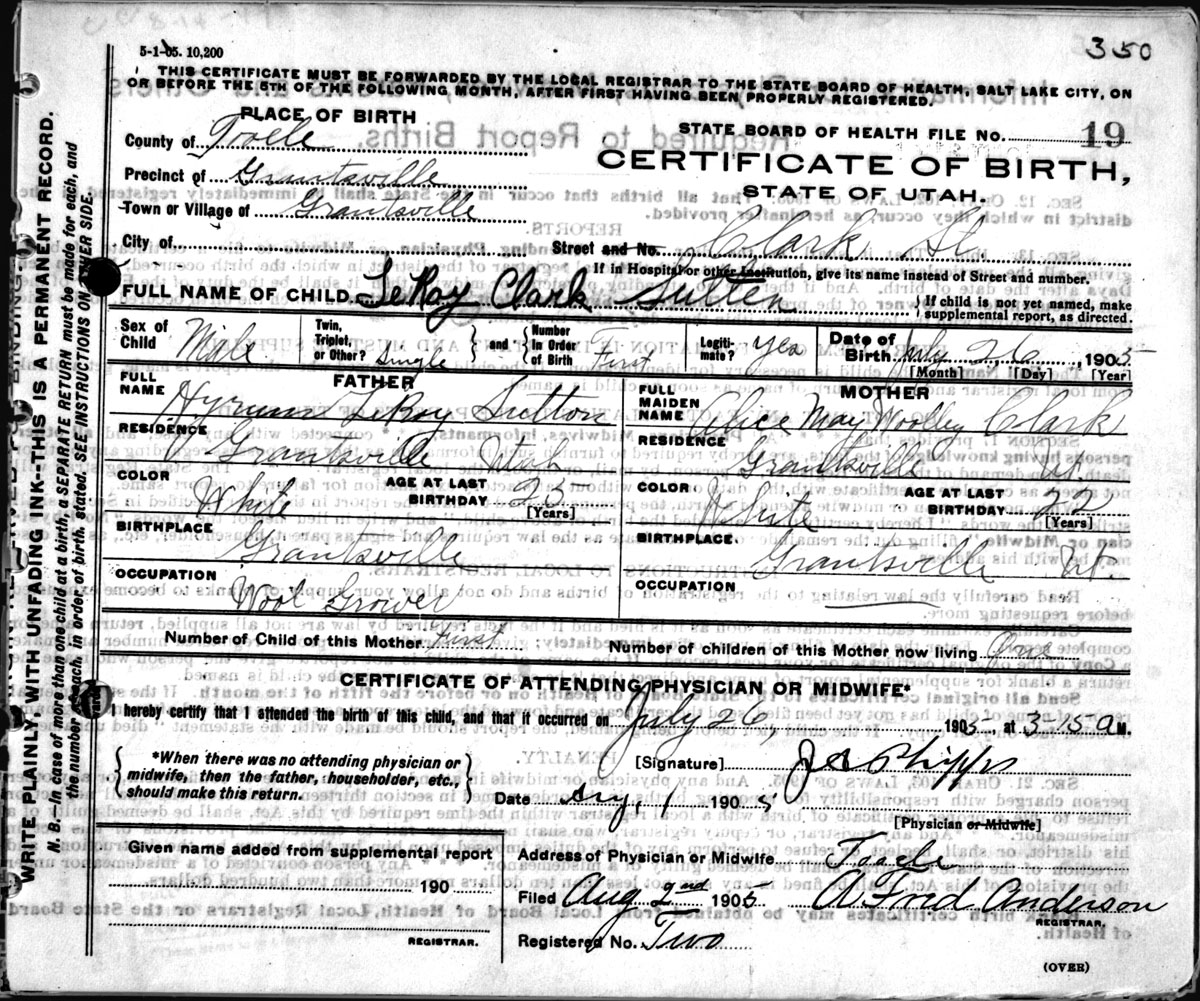 5-1-05. 10,200
350
THIS CERTIFICATE MUST BE FORWARDED BY THE LOCAL REGISTRAR TO THE STATE BOARD OF HEALTH, SALT LAKE CITY, ON
OR BEFORE THE 5TH OF THE FOLLOWING MONTH, AFTER FIRST HAVING BEEN PROPERLY REGISTERED.
PLACE OF BIRTH
STATE BOARD OF HEALTH FILE NO. 19
County of Tooele
CERTIFICATE OF BIRTH,
Precinct of Grantsville
STATE OF UTAH.
Town or Village of Grantsville
City of
Street and No. Clark St.
If in Hospital or other Institution, give its name instead of Street and number.
FULL NAME OF CHILD LeRoy Clark Sutton
{ If child is not yet named, make
supplemental report, as directed.
Sex of Child Male
Twin, Triplet, or Other? Single } and { Number in Order of Birth First
Legiti-mate? yes
Date of Birth July 26, 1905
[Month] [Day] [Year]
FATHER
FULL NAME Hyrum LeRoy Sutton
RESIDENCE Grantsville Utah
COLOR White
AGE AT LAST BIRTHDAY 25
[Years]
BIRTHPLACE Grantsville
OCCUPATION Wool Grower
MOTHER
FULL MAIDEN NAME Alice May Woolley Clark
RESIDENCE Grantsville Ut.
COLOR White
AGE AT LAST BIRTHDAY 22
[Years]
BIRTHPLACE Grantsville Ut.
OCCUPATION
Number of Child of this Mother First
Number of children of this Mother now living One
CERTIFICATE OF ATTENDING PHYSICIAN OR MIDWIFE*
I hereby certify that I attended the birth of this child, and that it occurred on July 26, 1905, at 3-15 a M.
{ *When there was no attending physician or
midwife, then the father, householder, etc.,
should make this return. }
[Signature] Phipps
Date Aug. 1 1905
[Physician or Midwife]
Given name added from supplemental report
190
REGISTRAR.
Address of Physician or Midwife Tooele
Filed Aug 2nd 1905 Anderson
REGISTRAR.
Registered No. Two
(OVER)
WRITE PLAINLY, WITH UNFADING INK--THIS IS A PERMANENT RECORD.
N. B.--In case of more than one child at a birth, a SEPARATE RETURN must be made for each, and
the number of each, in order of birth, stated. SEE INSTRUCTIONS ON OTHER SIDE.